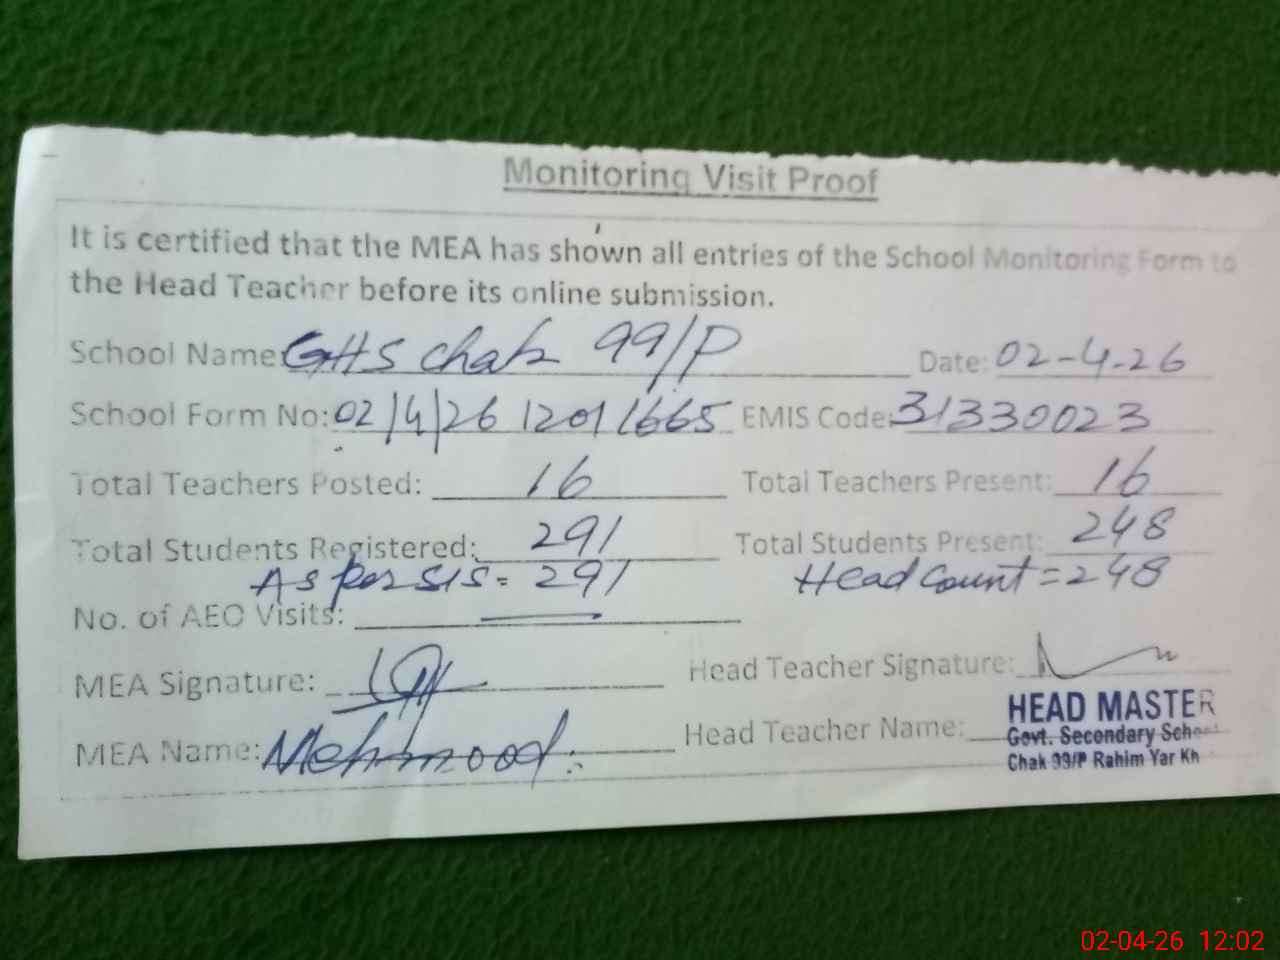 Monitoring Visit Proof
It is certified that the MEA has shown all entries of the School Monitoring Form to
the Head Teacher before its online submission.
School Name: GHS Chak 99/P Date: 02-4-26
School Form No: 02/4/26 12011665 EMIS Code: 31330023
Total Teachers Posted: 16 Total Teachers Present: 16
Total Students Registered: 291 Total Students Present: 248
As per SIS = 291 Head Count = 248
No. of AEO Visits: —
MEA Signature: Head Teacher Signature:
MEA Name: Mehmood Head Teacher Name:
HEAD MASTER
Govt. Secondary School
Chak 99/P Rahim Yar Kh
02-04-26 12:02